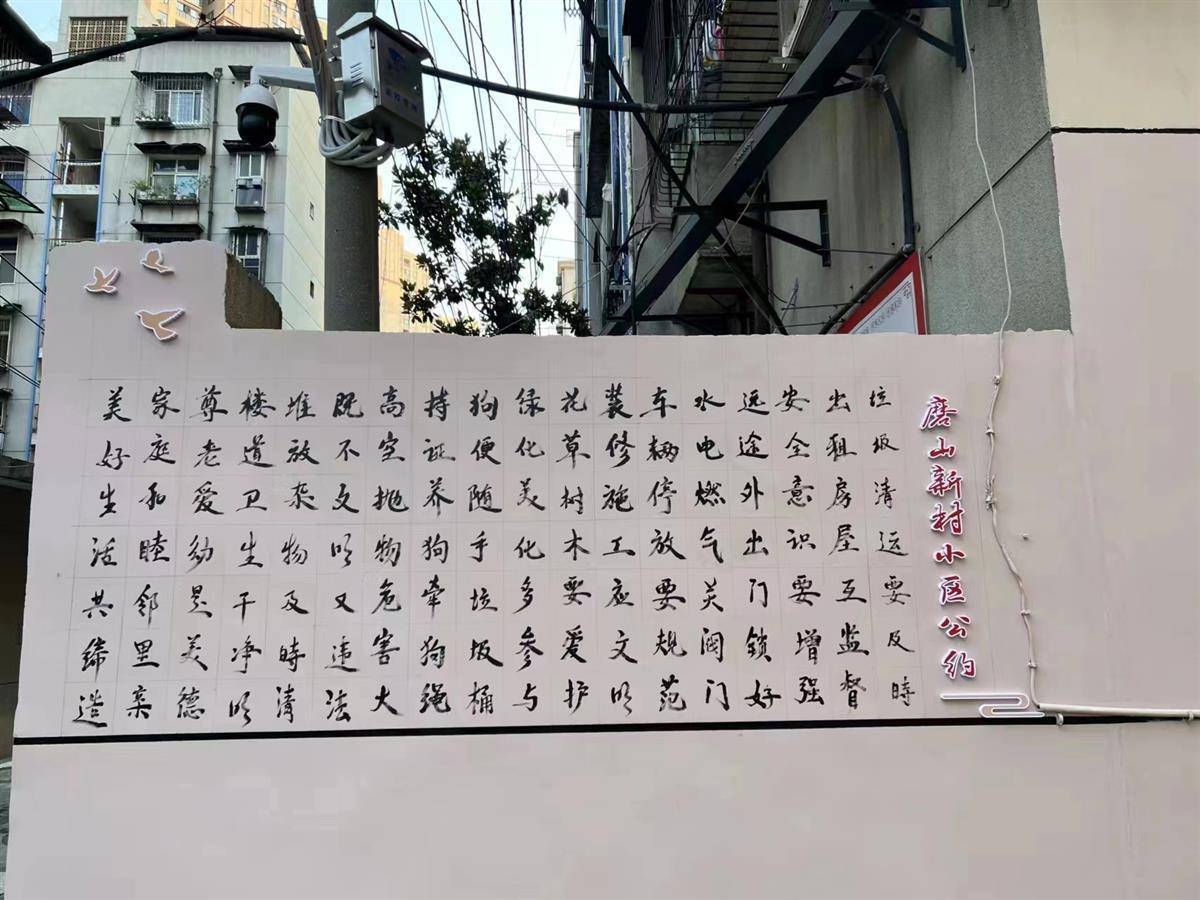 磨山新村小区公约
垃圾清运要及時
出租房屋互监督
安全意识要增强
远途外出门锁好
水电燃气关阀门
车辆停放要规范
装修施工应文明
花草树木要爱护
绿化美化多参与
狗便随手垃圾桶
持证养狗牵狗绳
高空抛物危害大
既不文明又违法
堆放杂物及時清
楼道卫生干净明
尊老爱幼是美德
家庭和睦邻里亲
美好生活共缔造